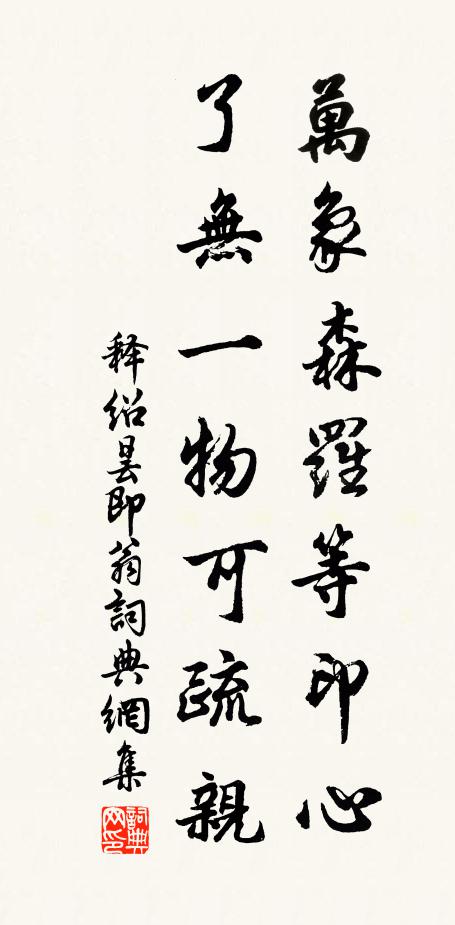 萬象森羅等印心
了無一物可疏親
释绍昙即翁詞典網集
詞典网印